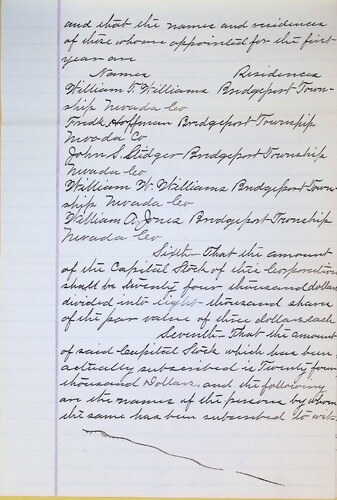 and that the names and residences
of those who are appointed for the first
year are
Names Residences
William T. Williams Bridgeport Town-
ship Nevada Co
Fredk Hoffman Bridgeport Township
Nevada Co
John S. Stidger Bridgeport Township
Nevada Co
William W. Williams Bridgeport Town-
ship Nevada Co
William A. Jones Bridgeport Township
Nevada Co
Sixth - That the amount
of the Capital Stock of this Corporation
shall be Twenty four thousand dollars
divided into Eight thousand shares
of the par value of three dollars each
Seventh - That the amount
of said Capital Stock which has been
actually subscribed is Twenty four
thousand Dollars, and the following
are the names of the persons by whom
the same has been subscribed to wit-